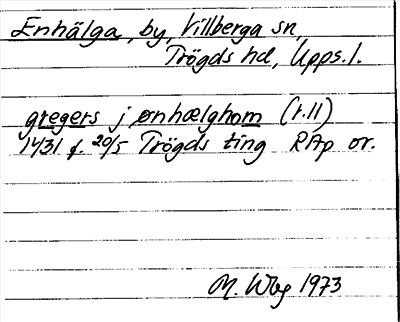 Enhälga, by, Villberga sn,
Trögds hd, Upps. l.
gregers j ønhælghom (r. 11)
1431 f. 20/5 Trögds ting RAp or.
M. Wbg 1973